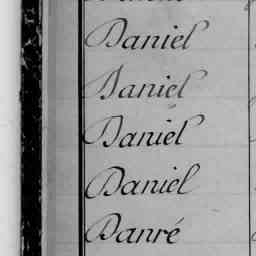 Daniel
Daniel
Daniel
Daniel
Danré